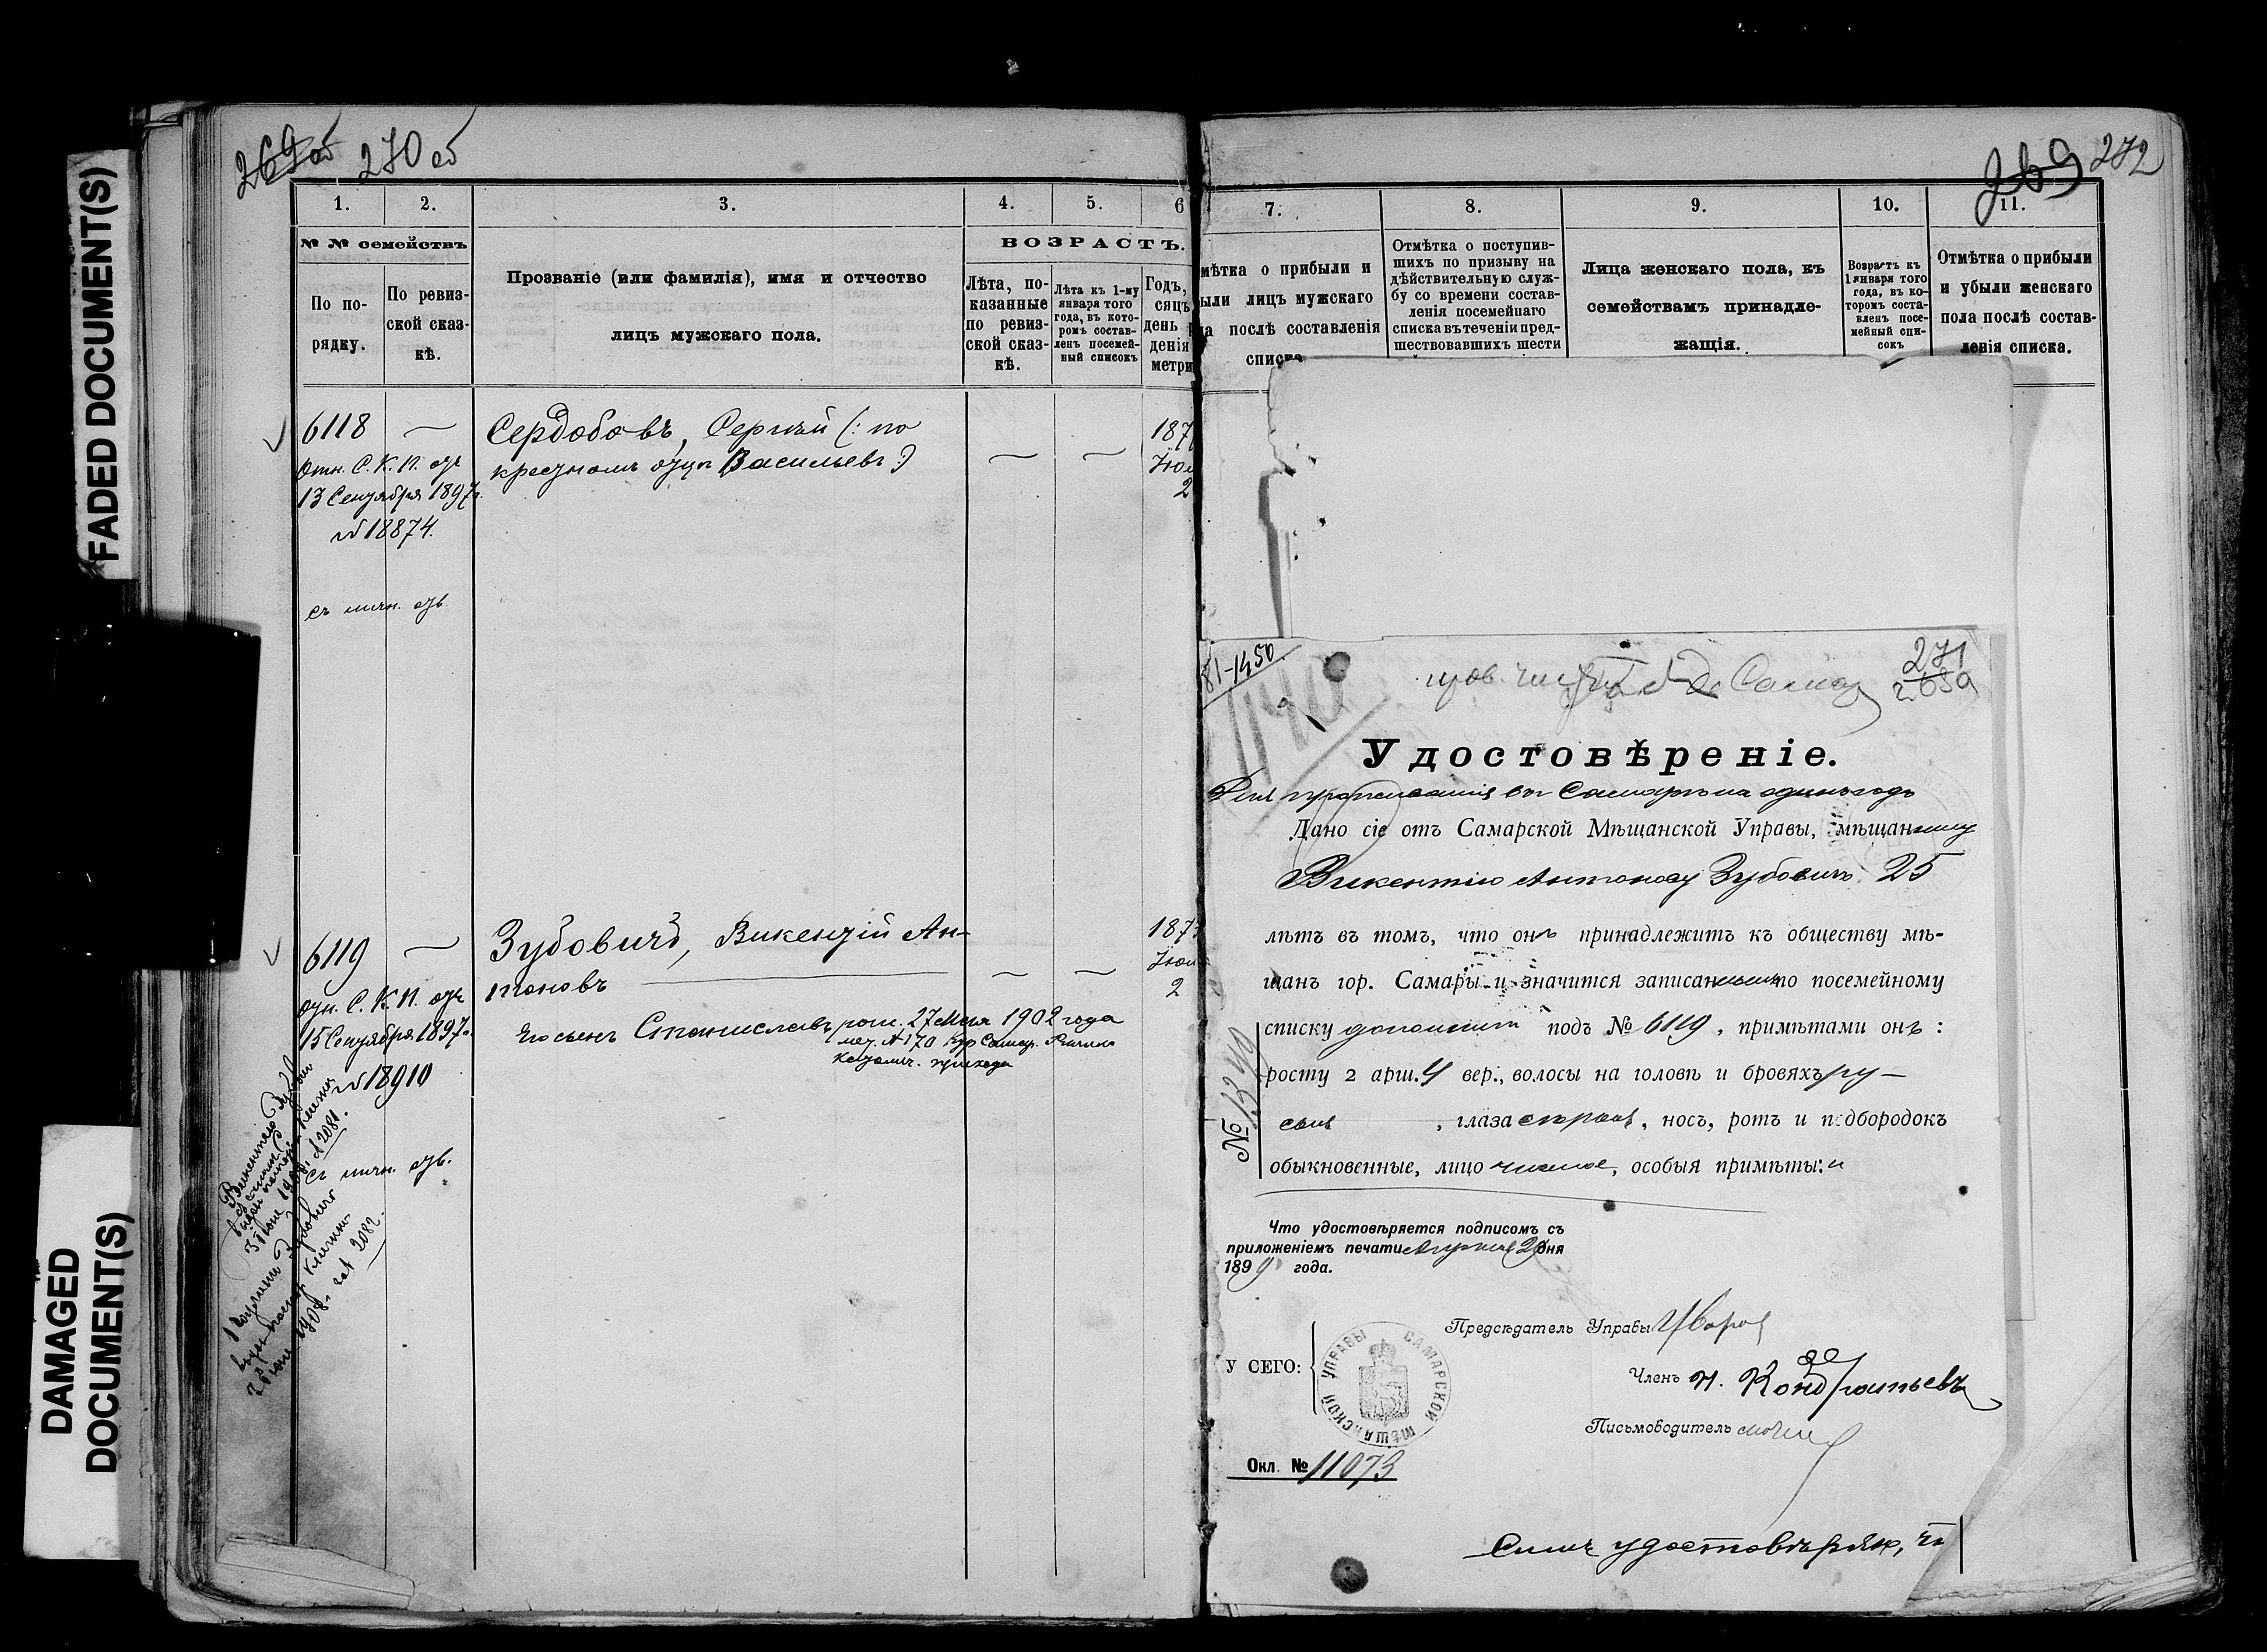 FADED DOCUMENT(S)
DAMAGED
DOCUMENT(S)
269об 270 об
1. 2. 3. 4. 5. 6
№ № семействъ
По по-
рядку.
По ревиз-
ской сказ-
кѣ.
Прозваніе (или фамилія), имя и отчество
лицъ мужскаго пола.
ВОЗРАСТЪ.
Лѣта, по-
казанные
по ревиз-
ской сказ-
кѣ.
Лѣта къ 1-му
января того
года, въ кото-
ромъ состав-
ленъ посемей-
ный списокъ
Годъ,
сяцъ
день р
денія
метри
6118 — Сердобовъ, Сергѣй (: по
крестномъ отцѣ Васильевъ :) — —
187
Іюл
2
Отн. С. К. П. отъ
13 Сентября 1897г.
№ 18874.
съ личн. отв.
6119 — Зубовичъ, Викентій Ан-
тоновъ — —
187
Іюл
2
Отн. С. К. П. отъ
15 Сентября 1897г.
№ 18910
съ личн. отв.
Его сынъ Станиславъ рож. 27 Мая 1902 года
мет. № 170 Самар. Римско
католич. прихода
Викентію Зубович
1908 г. № 2081.
Зубовичъ
1908 г. за № 2082.
269 272
7. 8. 9. 10. 11.
мѣтка о прибыли и
ыли лицъ мужскаго
ла послѣ составленія
списка
Отмѣтка о поступив-
шихъ по призыву на
дѣйствительную служ-
бу со времени состав-
ленія посемейнаго
списка въ теченіи пред-
шествовавшихъ шести
Лица женскаго пола, къ
семействамъ принадле-
жащія.
Возрастъ къ
1 января того
года, въ ко-
торомъ соста-
вленъ посе-
мейный спи-
сокъ
Отмѣтка о прибыли
и убыли женскаго
пола послѣ состав-
ленія списка.
81-1450
271
Удостовѣреніе.
Для проживанія въ Самарѣ на одинъ годъ
Дано сіе отъ Самарской Мѣщанской Управы, мѣщанину
Викентію Антонову Зубовичъ 25
лѣтъ въ томъ, что онъ принадлежитъ къ обществу мѣ-
щанъ гор. Самары и значится записаннымъ по посемейному
списку дополнит подъ № 6119, примѣтами онъ:
росту 2 арш. 4 вер., волосы на головѣ и бровяхъ ру-
сые, глаза сѣрые, носъ, ротъ и подбородокъ
обыкновенные, лицо чистое, особыя примѣты:
№ 1340
Что удостовѣряется подписомъ съ
приложеніемъ печати Апрѣля дня
1899 года.
Предсѣдатель Управы
Членъ Н. Кондратьевъ
Письмоводитель
У СЕГО:
САМАРСКОЙ МѢЩАНСКОЙ УПРАВЫ
Окл. № 11073
Симъ удостовѣряю, что